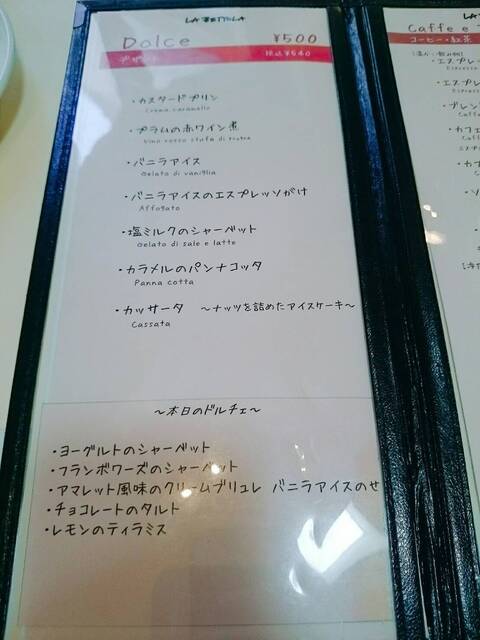 LA BETTOLA
Dolce ¥500
デザート 税込¥540
・カスタードプリン
Crema caramello
・プラムの赤ワイン煮
Vino rosso stufa di prugna
・バニラアイス
Gelato di vaniglia
・バニラアイスのエスプレッソがけ
Affogato
・塩ミルクのシャーベット
Gelato di sale e latte
・カラメルのパンナコッタ
Panna cotta
・カッサータ ～ナッツを詰めたアイスケーキ～
Cassata
～本日のドルチェ～
・ヨーグルトのシャーベット
・フランボワーズのシャーベット
・アマレット風味のクリームブリュレ バニラアイスのせ
・チョコレートのタルト
・レモンのティラミス
Caffe e
コーヒー・紅茶
・エスプレ
Espresso
・エスプレ
Espresso
・ブレン
Caffe
・カフェ
Caffe
・カプ